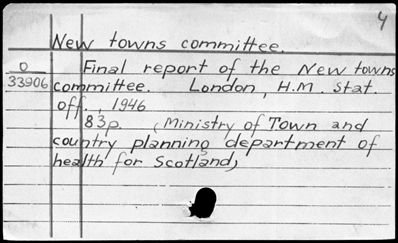 4
New towns committee.
O Final report of the New towns
33906 committee. London, H.M. Stat.
off., 1946
83p. (Ministry of Town and
country planning department of
health for Scotland)